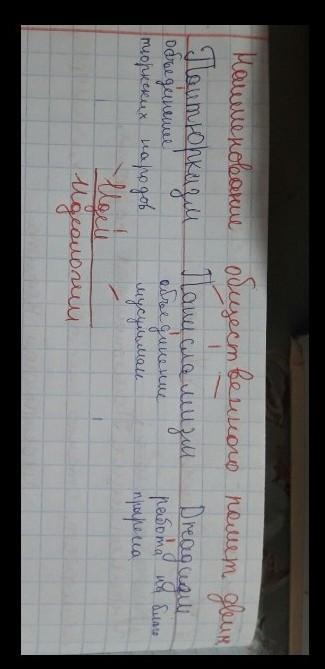 Наименование общественного полит. движ.
Пантюркизм Панисламизм Джадидизм
объединение объединение работа на благо
тюркских народов мусульман прогресса
Идеи
Идеологии